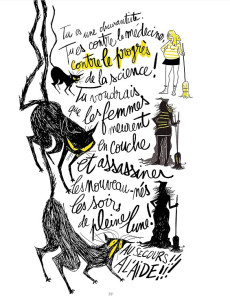 Tu es une épouvantite.
Tu es contre la médecine,
contre le progrès
de la science !
Tu voudrais
que les femmes
meurent
en couche
et assassiner
les nouveau-nés
les soirs
de pleine lune !
AU SECOURS !!
À L'AIDE !!!